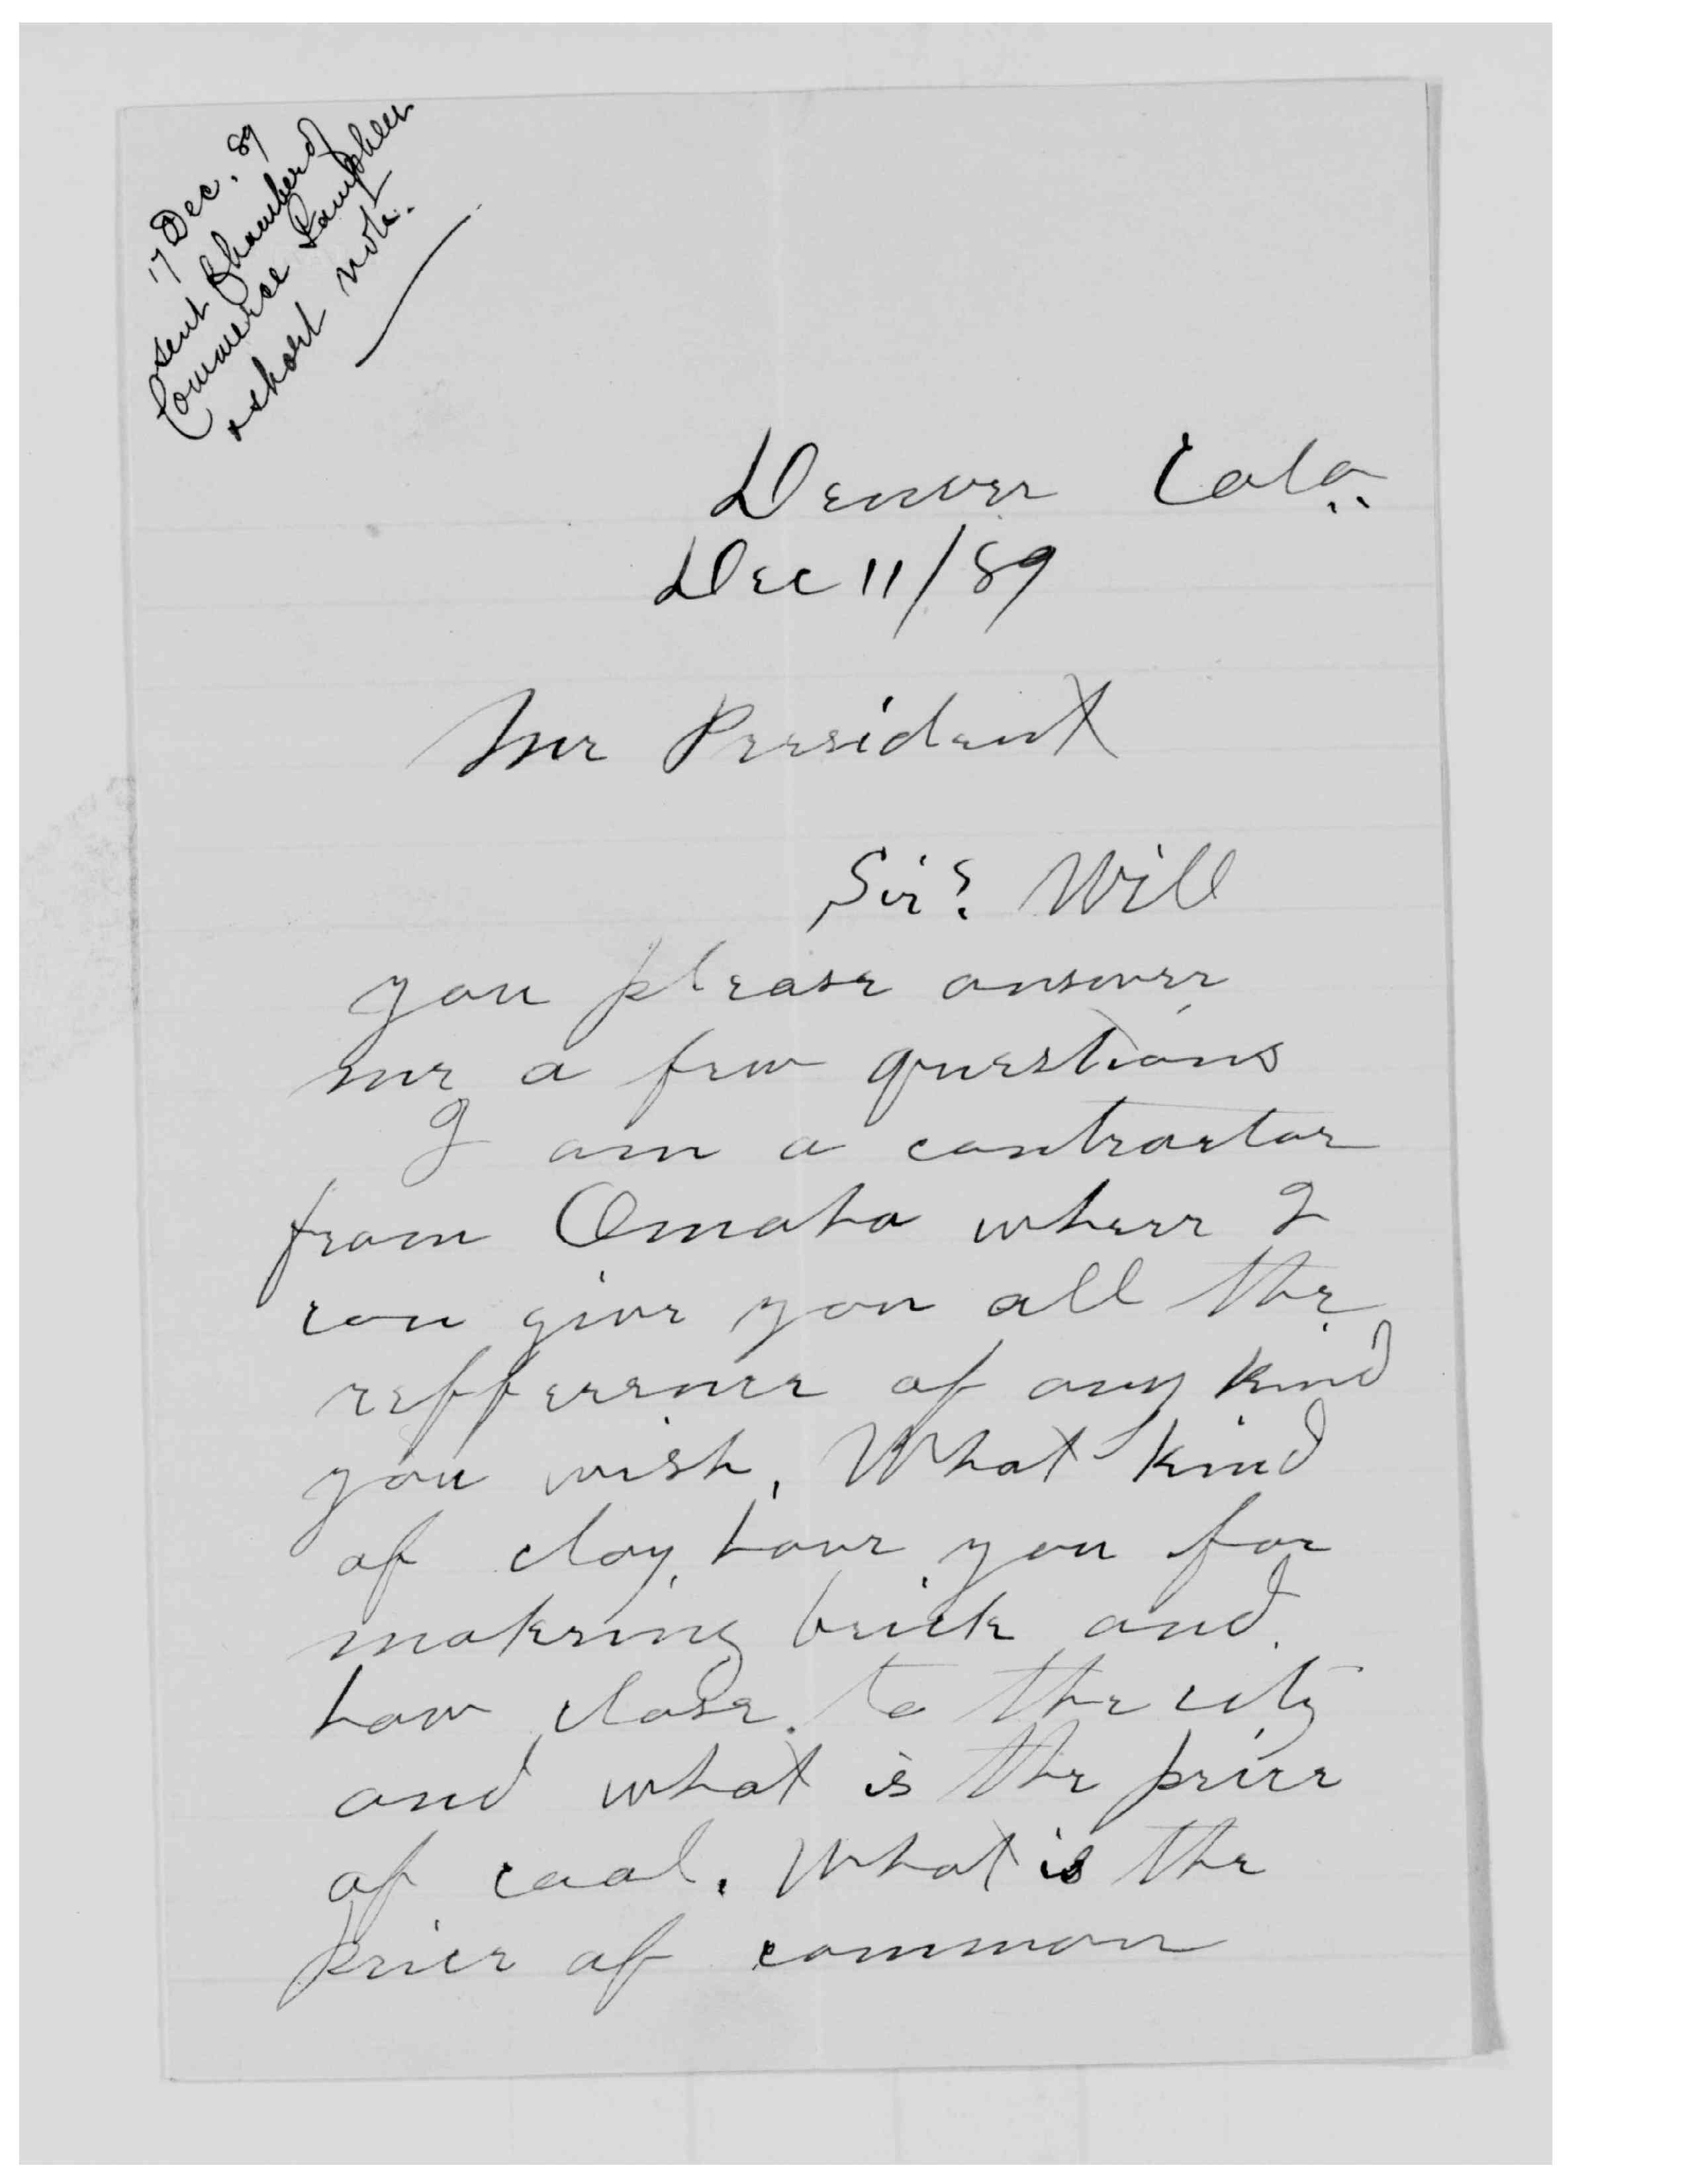 17 Dec. 89
sent Chamber of
Commerce Pamphlet
& short note.
Denver Colo.
Dec 11/89
Mr President
Sir: Will
you please answer
me a few questions
I am a contractor
from Omaha where I
can give you all the
refference of any kind
you wish. What kind
of clay have you for
makeing brick and
how close to the city
and what is the price
of coal. What is the
price of common